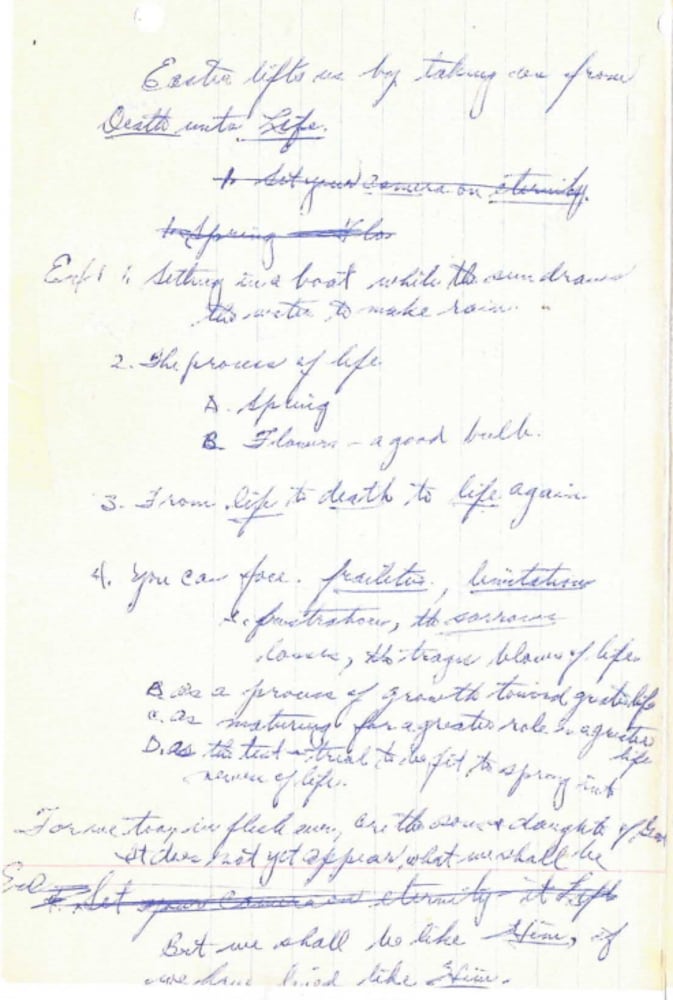 Easter lifts us by taking us from
Death unto Life.
1. Set your camera on eternity.
1. Spring Flo
1. Setting in a boat while the sun draws
the water to make rain.
2. The process of life
A. Spring
B. Flowers - a good bulb.
3. From life to death to life again
4. You can face frailties, limitations
frustrations, the sorrows
losses, the tragic blows of life
B as a process of growth toward greater life
C. as maturing for a greater role in a greater
life
D. as the test - trial to be fit to spring into
of life.
For we today in flesh are the sons & daughters of God
It does not yet appear what we shall be
Set your camera on eternity - it
But we shall be like Him, if
we have lived like Him.